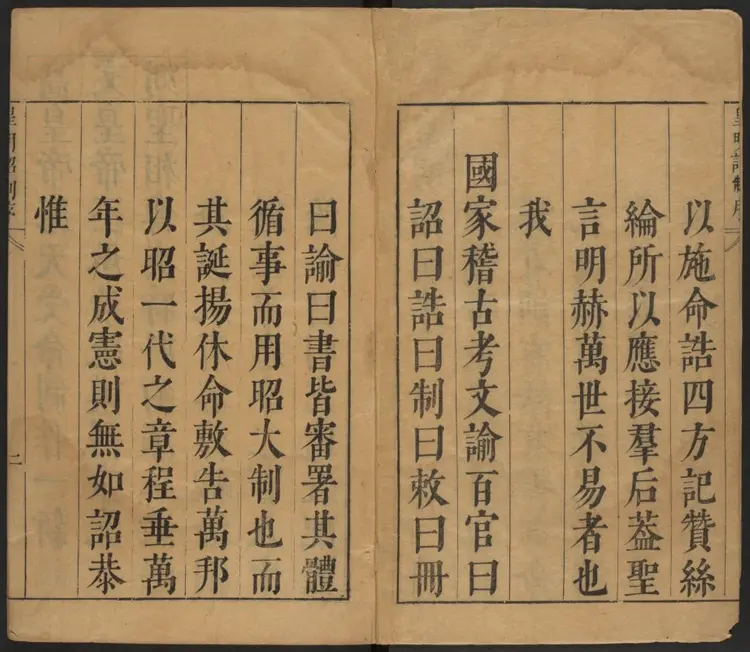 皇明詔制序
以施命誥四方記贊絲
綸所以應接羣后葢聖
言明赫萬世不易者也
我
國家稽古考文諭百官曰
詔曰誥曰制曰敕曰冊
曰諭曰書皆審署其體
循事而用昭大制也而
其誕揚休命敷告萬邦
以昭一代之章程垂萬
年之成憲則無如詔恭
惟
皇明詔制序
二